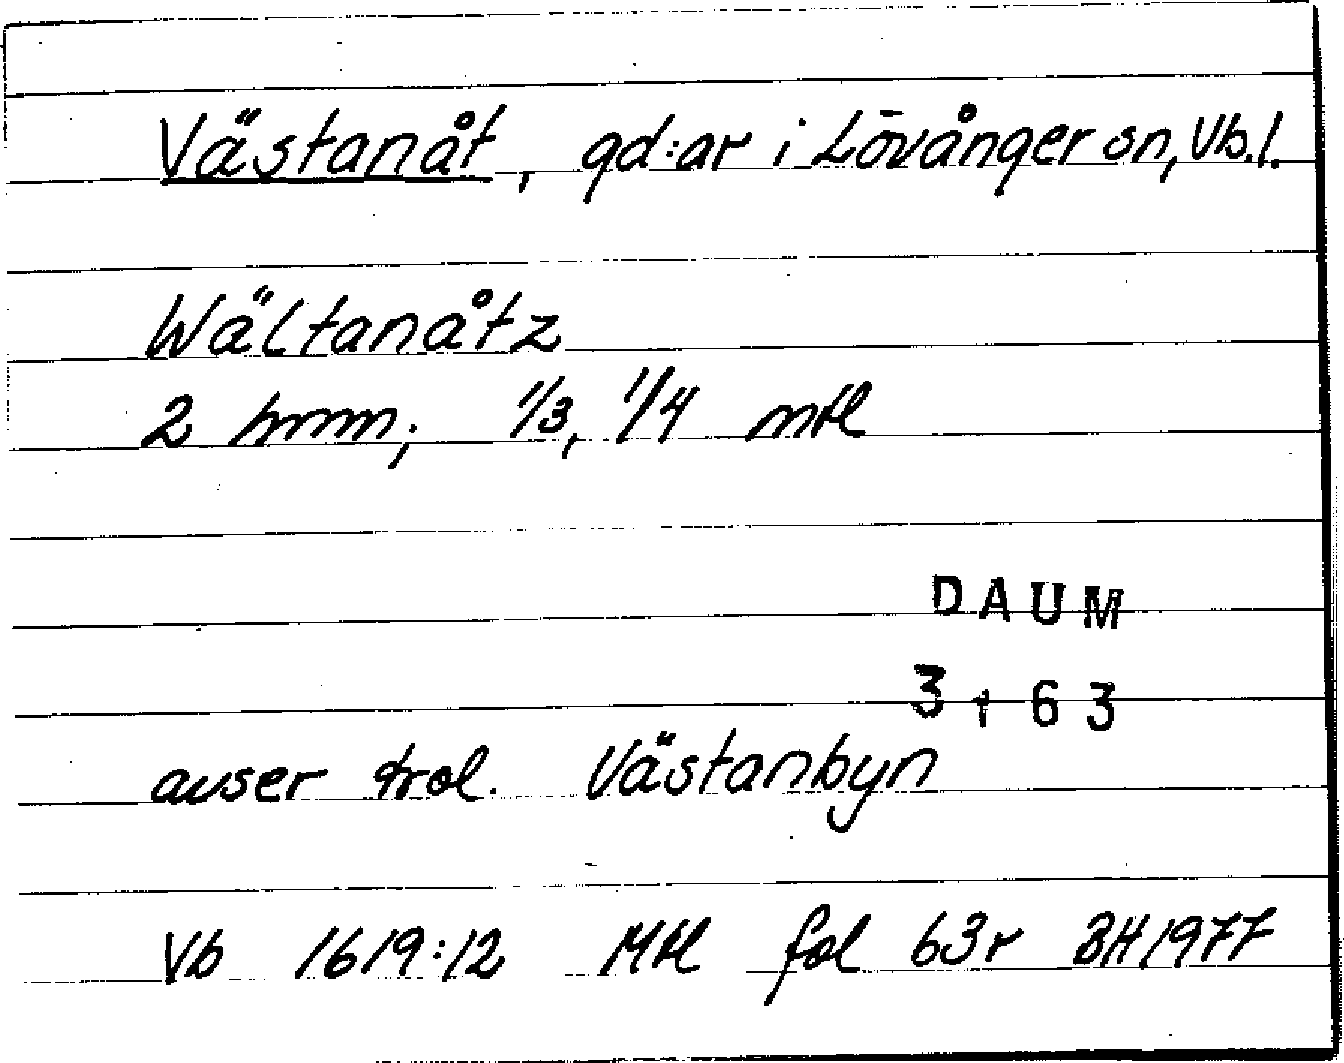 Västanåt, gd:ar i Lövånger sn, Vb.l.
Wäſtanåtz
2 hmm; 1/3, 1/4 mtl
DAUM
3163
avser trol. Västanbyn
Vb 1619:12 Mtl fol 63r BH 1977